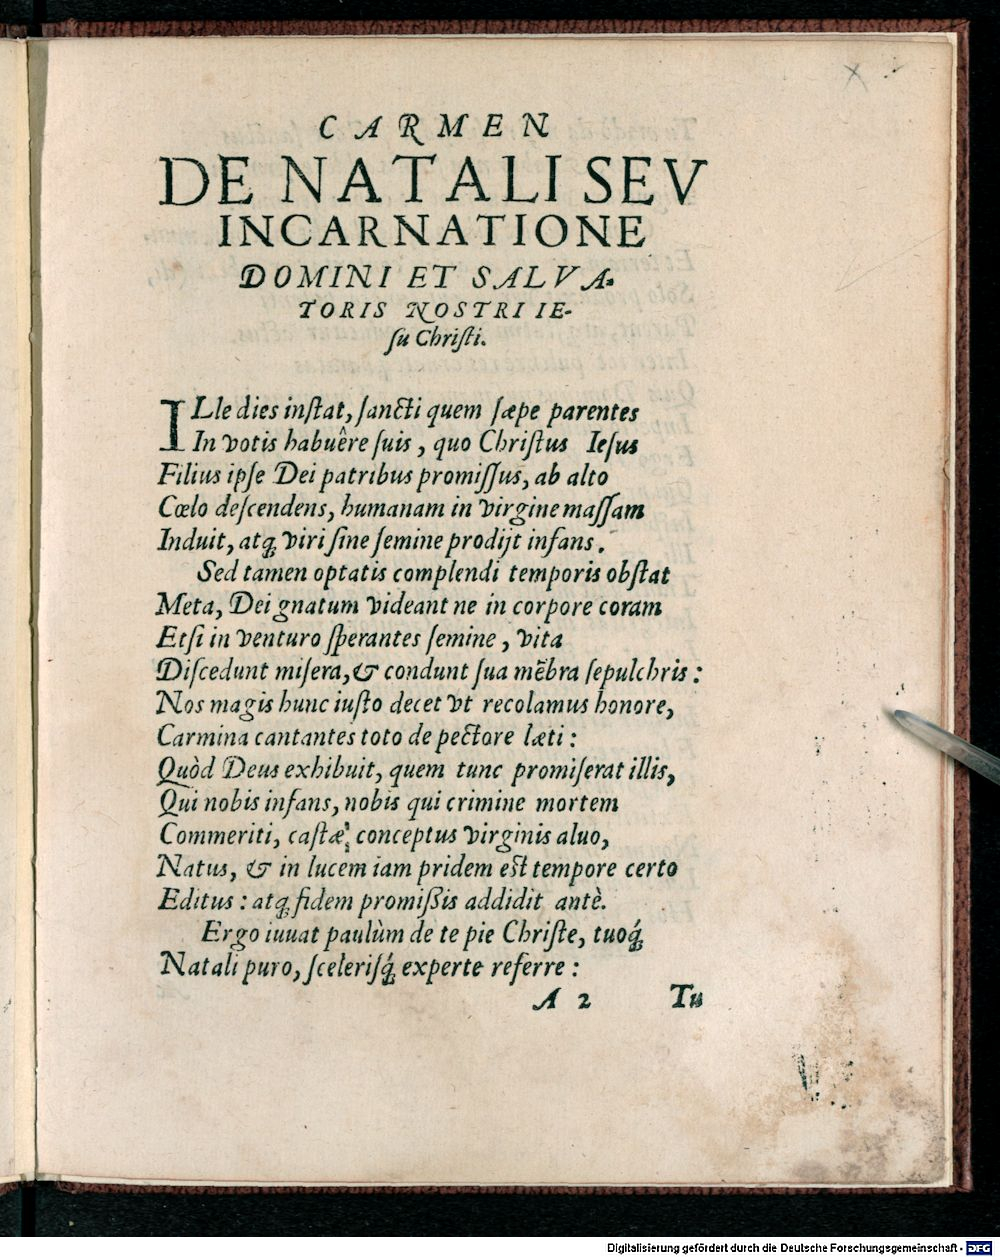 CARMEN
DE NATALI SEV
INCARNATIONE
DOMINI ET SALVA-
TORIS NOSTRI IE-
su Christi.
ILle dies instat, sancti quem sæpe parentes
In votis habuêre suis, quo Christus Iesus
Filius ipse Dei patribus promissus, ab alto
Cœlo descendens, humanam in virgine massam
Induit, atq; viri sine semine prodijt infans.
Sed tamen optatis complendi temporis obstat
Meta, Dei gnatum videant ne in corpore coram
Etsi in venturo sperantes semine, vita
Discedunt misera, & condunt sua mẽbra sepulchris:
Nos magis hunc iusto decet vt recolamus honore,
Carmina cantantes toto de pectore læti:
Quòd Deus exhibuit, quem tunc promiserat illis,
Qui nobis infans, nobis qui crimine mortem
Commeriti, castæ conceptus virginis aluo,
Natus, & in lucem iam pridem est tempore certo
Editus: atq; fidem promißis addidit antè.
Ergo iuuat paulùm de te pie Christe, tuoq́;
Natali puro, scelerisq́; experte referre:
A 2 Tu
Digitalisierung gefördert durch die Deutsche Forschungsgemeinschaft - DFG